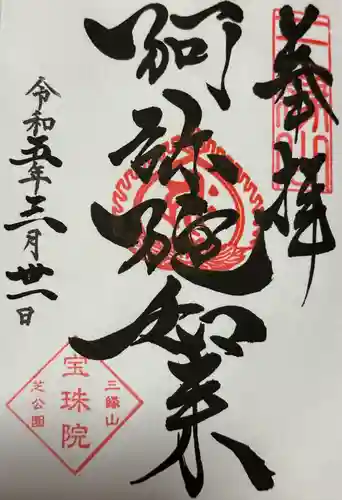 奉拝
阿弥陀如来
令和五年三月廿一日
三縁山
宝珠院
芝公園